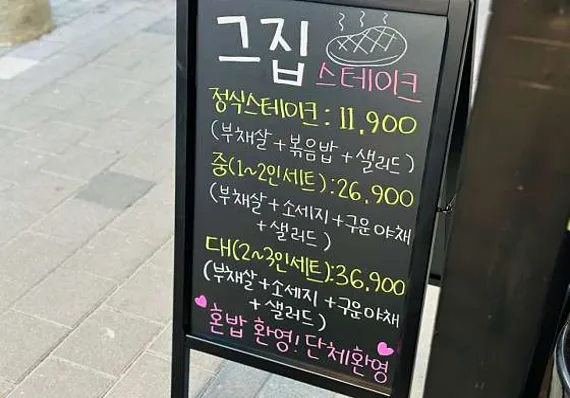 그집
스테이크
정식스테이크 : 11,900
(부채살 + 볶음밥 + 샐러드)
중(1~2인세트) : 26,900
(부채살 + 소세지 + 구운야채
+ 샐러드)
대(2~3인세트) : 36,900
(부채살 + 소세지 + 구운야채
+ 샐러드)
혼밥 환영! 단체환영